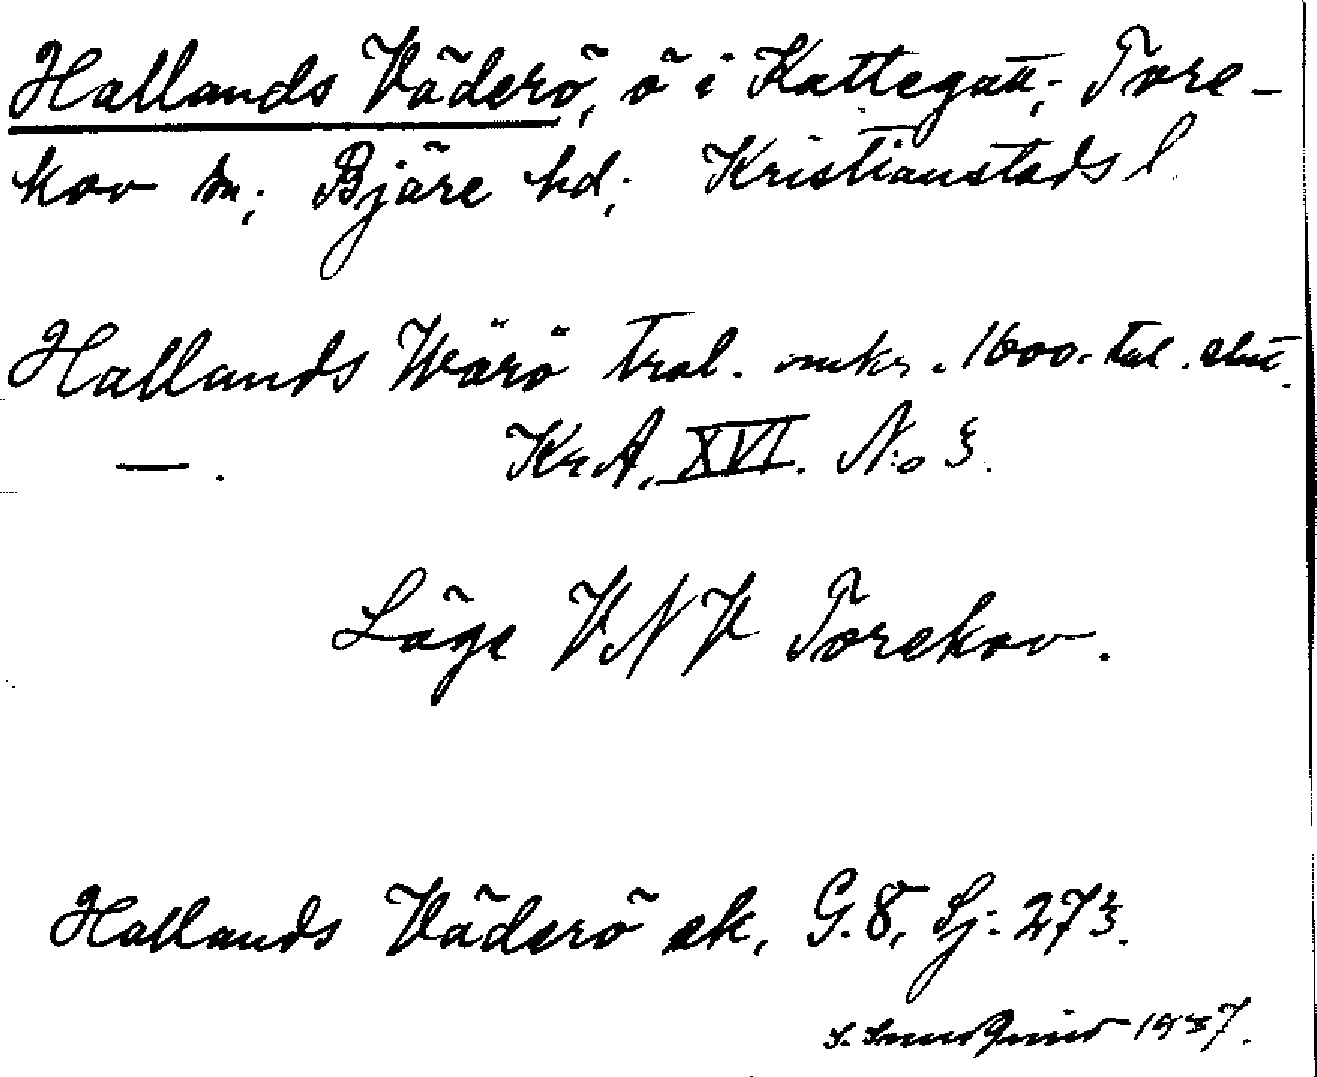 Hallands Väderö, ö i Kattegatt; Tore-
kov sn; Bjäre hd; Kristianstads l
Hallands Wärö trol. omkr. 1600-tal. slut.
— . KrA, XVI. No 3.
Läge VNV Torekov.
Hallands Väderö ek, G.8, Sj: 273.